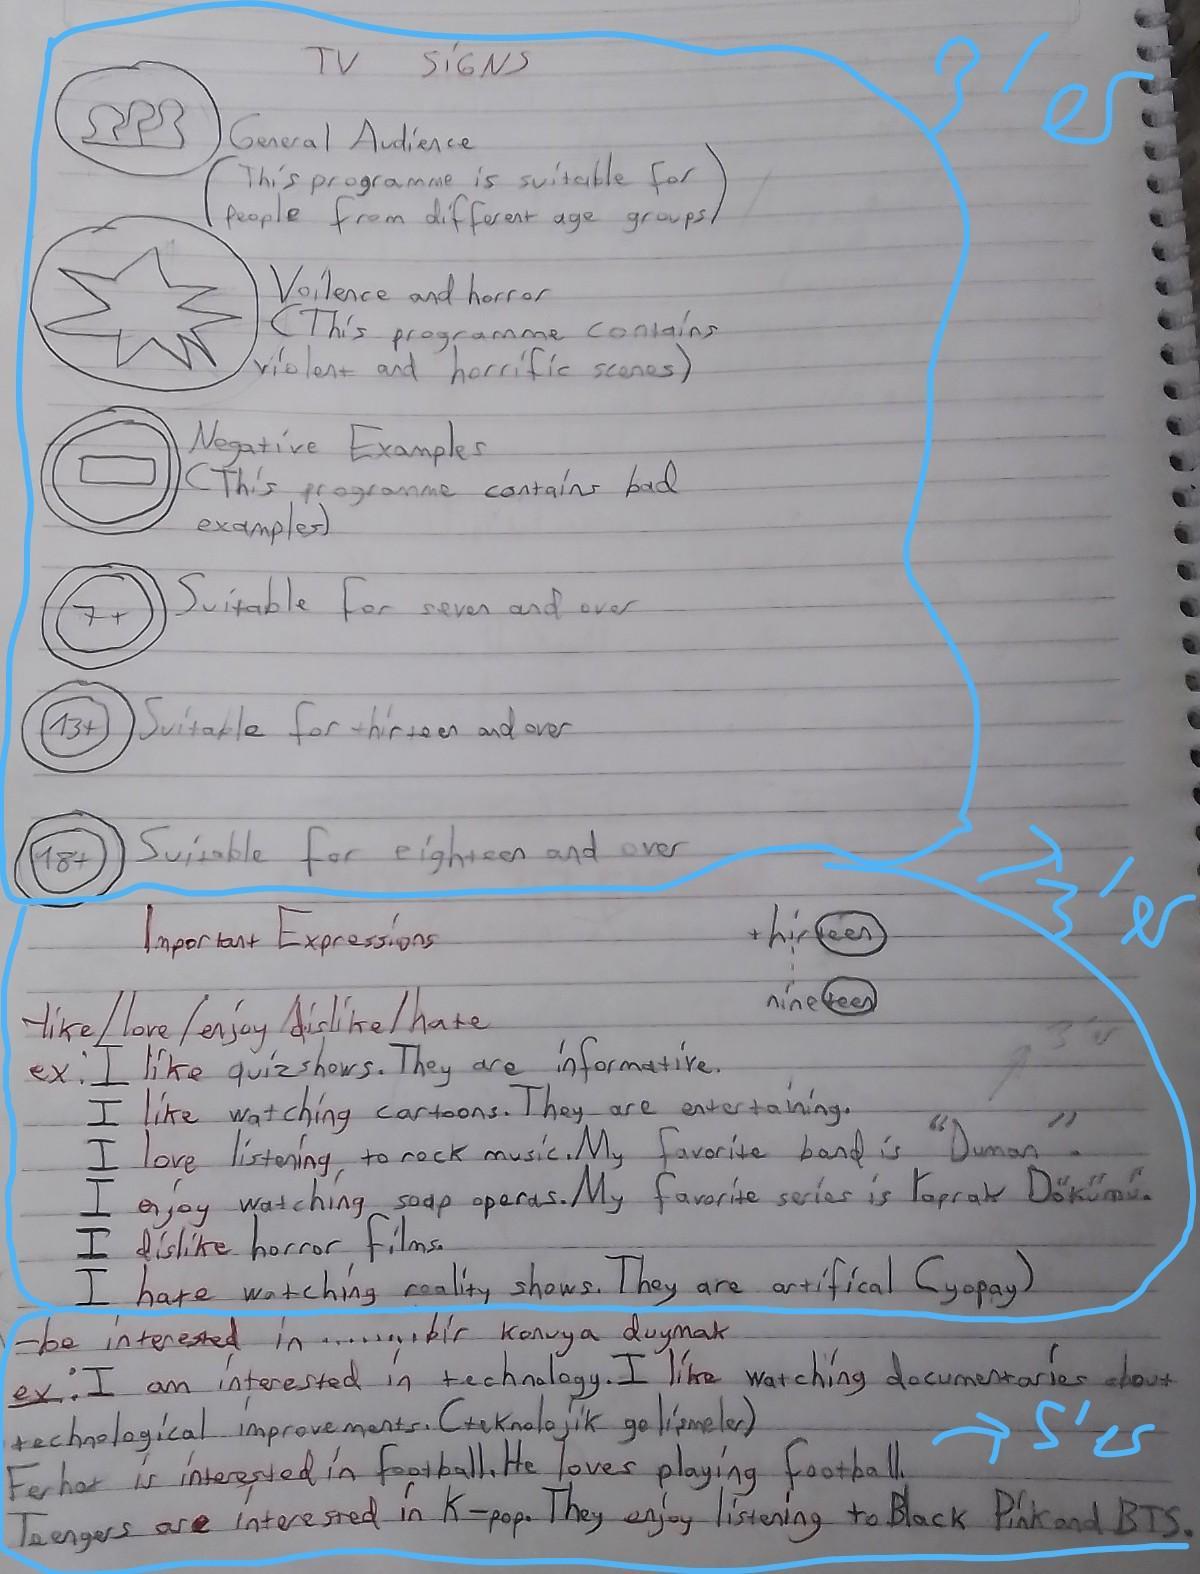 TV SiGNS
3'er
General Audience
(This programme is suitable for
people from different age groups)
Voilence and horror
(This programme contains
violent and horrific scenes)
Negative Examples
(This programme contains bad
examples)
7+ Suitable for seven and over
13+ Suitable for thirteen and over
18+ Suitable for eighteen and over
→ 3'er
Important Expressions
thirteen
nineteen
-like/love/enjoy dislike/hate
3'er
ex: I like quizshows. They are informative.
I like watching cartoons. They are entertaining.
I love listening to rock music. My favorite band is "Duman".
I enjoy watching soap operas. My favorite series is Yaprak Dökümü.
I dislike horror films.
I hate watching reality shows. They are artifical (yapay)
-be interested in ......... bir konuya duymak
ex: I am interested in technology. I like watching documentaries about
technological improvements. (teknolojik gelişmeler)
→ 5'er
Ferhat is interested in football. He loves playing football.
Teengers are interested in K-pop. They enjoy listening to Black Pink and BTS.